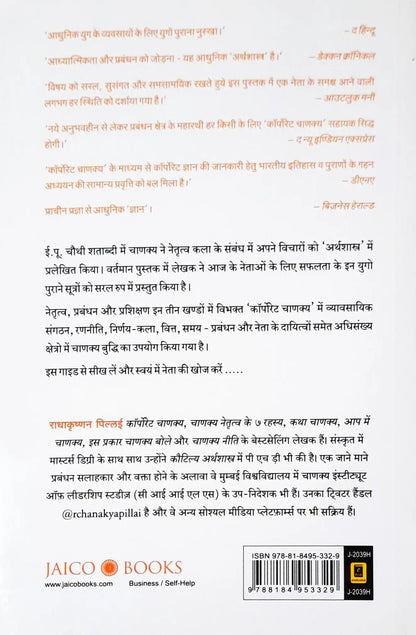 'आधुनिक युग के व्यवसायों के लिए युगो पुराना नुस्खा।'
– द हिन्दू
'आध्यात्मिकता और प्रबंधन को जोड़ना - यह आधुनिक 'अर्थशास्त्र' है।'
– डेक्कन क्रॉनिकल
'विषय को सरल, सुसंगत और समसामयिक रखते हुये इस पुस्तक में एक नेता के समक्ष आने वाली
लगभग हर स्थिति को दर्शाया गया है।'
– आउटलुक मनी
'नये अनुभवहीन से लेकर प्रबंधन क्षेत्र के महारथी हर किसी के लिए 'कॉर्पोरेट चाणक्य' सहायक सिद्ध
होगी।'
– द न्यू इण्डियन एक्सप्रेस
'कॉर्पोरेट चाणक्य' के माध्यम से कॉर्पोरेट ज्ञान की जानकारी हेतु भारतीय इतिहास व पुराणों के गहन
अध्ययन की सामान्य प्रवृत्ति को बल मिला है।'
– डीएनए
प्राचीन प्रज्ञा से आधुनिक 'ज्ञान'।
– बिजनेस हेराल्ड
ई.पू. चौथी शताब्दी में चाणक्य ने नेतृत्व कला के संबंध में अपने विचारों को 'अर्थशास्त्र' में
प्रलेखित किया। वर्तमान पुस्तक में लेखक ने आज के नेताओं के लिए सफलता के इन युगो
पुराने सूत्रों को सरल रुप में प्रस्तुत किया है।
नेतृत्व, प्रबंधन और प्रशिक्षण इन तीन खण्डों में विभक्त 'कॉर्पोरेट चाणक्य' में व्यावसायिक
संगठन, रणनीति, निर्णय-कला, वित्त, समय - प्रबंधन और नेता के दायित्वों समेत अधिसंख्य
क्षेत्रो में चाणक्य बुद्धि का उपयोग किया गया है।
इस गाइड से सीख लें और स्वयं में नेता की खोज करें .....
राधाकृष्णन पिल्लई कॉर्पोरेट चाणक्य, चाणक्य नेतृत्व के ७ रहस्य, कथा चाणक्य, आप में
चाणक्य, इस प्रकार चाणक्य बोले और चाणक्य नीति के बेस्टसेलिंग लेखक हैं। संस्कृत में
मास्टर्स डिग्री के साथ साथ उन्होंने कौटिल्य अर्थशास्त्र में पी एच डी भी की है। एक जाने माने
प्रबंधन सलाहकार और वक्ता होने के अलावा वे मुम्बई विश्वविद्यालय में चाणक्य इंस्टीट्यूट
ऑफ़ लीडरशिप स्टडीज़ (सी आई आई एल एस) के उप-निदेशक भी हैं। उनका ट्विटर हैंडल
@rchanakyapillai है और वे अन्य सोश्यल मीडिया प्लेटफ़ार्म्स पर भी सक्रिय हैं।
JAICO BOOKS
www.jaicobooks.com
Business / Self-Help
ISBN 978-81-8495-332-9
9 788184 953329
J-2039H
J-2039H